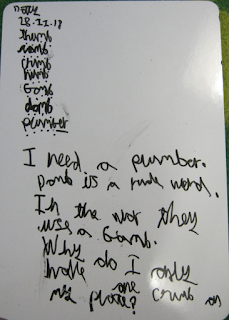 28.11.17
thumb
numb
climb
lamb
bomb
domb
plumber
I need a plumbar.
Domb is a rude word.
In the war they
use a bomb.
Why
do I only
one
my plate? crumb on